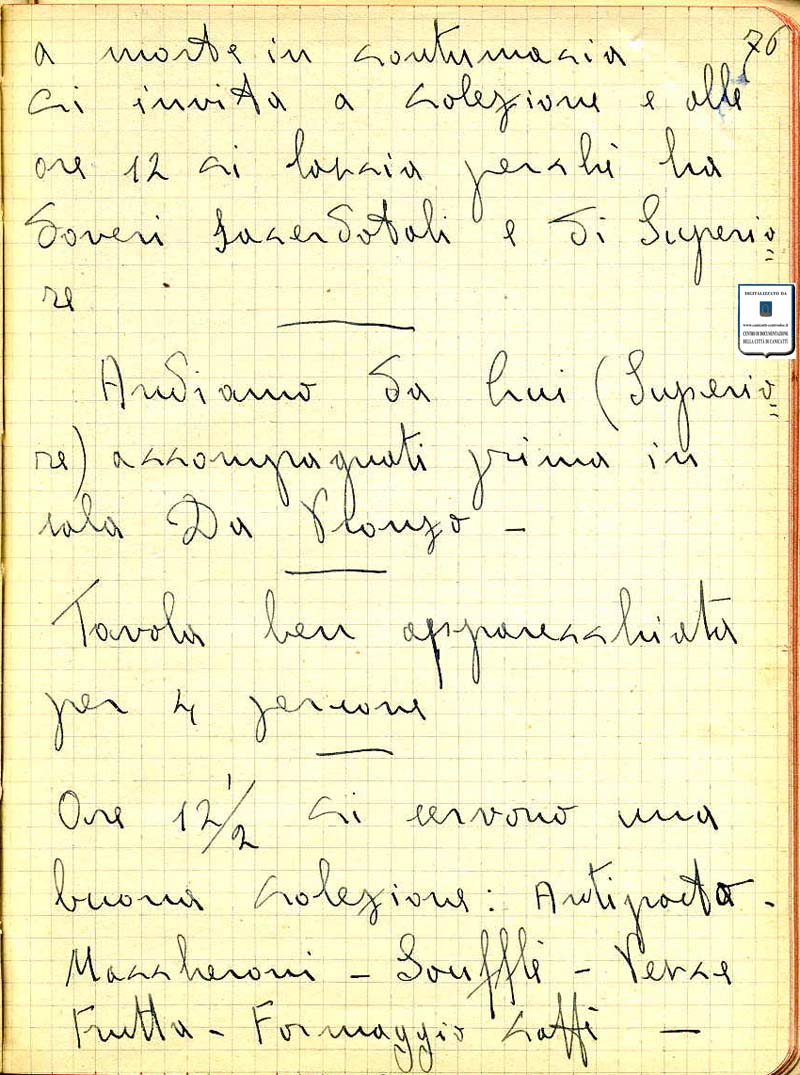 76
a morte in contumacia
ci invita a colezione e alle
ore 12 ci lascia perchè ha
doveri sacerdotali e di Superio
re
Andiamo da lui (Superio
re) accompagnati prima in
sala Da
Tavola ben apparecchiata
per 4 persone
Ore 12 1/2 ci servono una
buona colezione: Antipasto -
Maccheroni - Soufflè - Pesce
Frutta - Formaggio caffè -
DIGITALIZZATO DA
CENTRO DI DOCUMENTAZIONE
DELLA CITTÀ DI CANICATTÌ